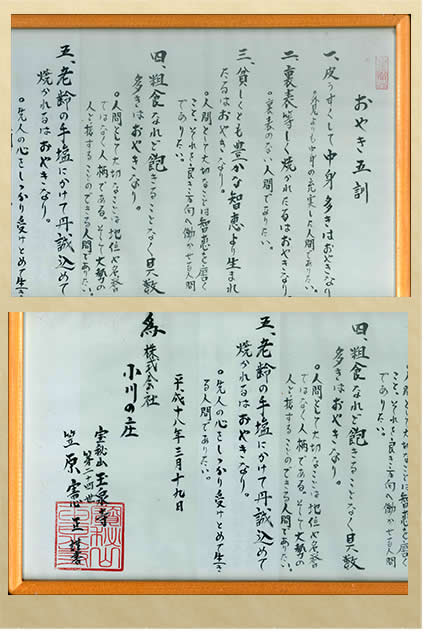 おやき五訓
一、皮うすくして中身多きはおやきなり
。外見よりも中身の充実した人間でありたい。
二、裏表等しく焼かれたるはおやきなり。
。裏表のない人間でありたい。
三、貧しくとも豊かな智恵より生まれ
たるはおやきなり。
。人間として大切なことは智恵を磨く
こと、それを良き方向へ働かせる人間
でありたい。
四、粗食なれど飽きることなく具数
多きはおやきなり。
。人間として大切なことは地位や名誉
ではなく人柄である。そして大勢の
人と接することのできる人間でありたい。
五、老齢の手塩にかけて丹誠込めて
焼かれるはおやきなり。
。先人の心をしっかり受けとめて生き
。人間として大切なことは智恵を磨く
こと、それを良き方向へ働かせる人間
でありたい。
四、粗食なれど飽きることなく具数
多きはおやきなり。
。人間として大切なことは地位や名誉
ではなく人柄である。そして大勢の
人と接することのできる人間でありたい。
五、老齢の手塩にかけて丹誠込めて
焼かれるはおやきなり。
。先人の心をしっかり受けとめて生き
る人間でありたい。
平成十八年三月十九日
為 株式会社
小川の庄
玉泉寺
第二十四世
笠原憲正